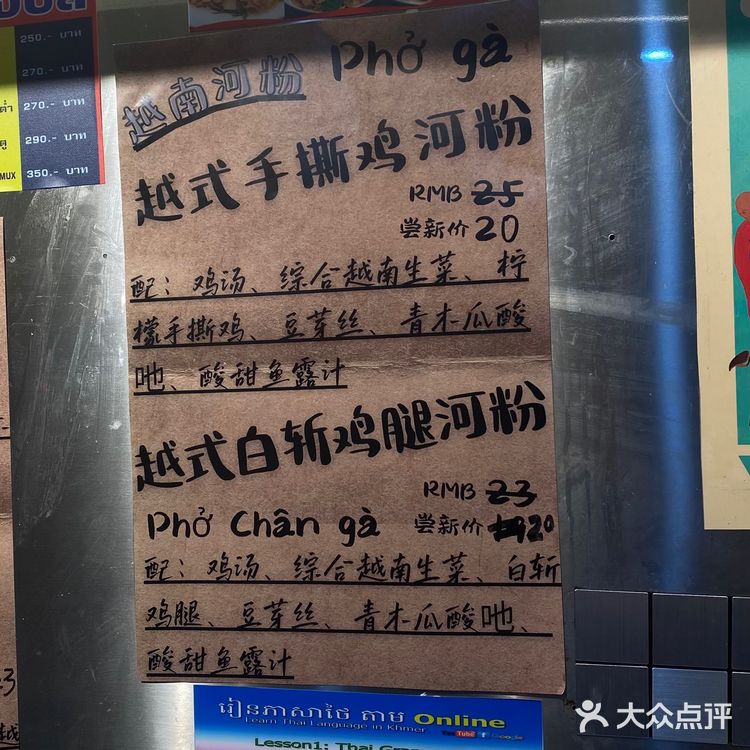 250.- บาท
270.- บาท
270.- บาท
290.- บาท
MUX 350.- บาท
越南河粉 Phở gà
越式手撕鸡河粉
RMB 25
尝新价 20
配：鸡汤、综合越南生菜、柠
檬手撕鸡、豆芽丝、青木瓜酸
吔、酸甜鱼露汁
越式白斩鸡腿河粉
RMB 23
Phở Chân gà 尝新价 20
配：鸡汤、综合越南生菜、白斩
鸡腿、豆芽丝、青木瓜酸吔、
酸甜鱼露汁
រៀនភាសាថៃ តាម Online
Learn Thai Language in Khmer
YouTube Google
Lesson1: Thai
大众点评